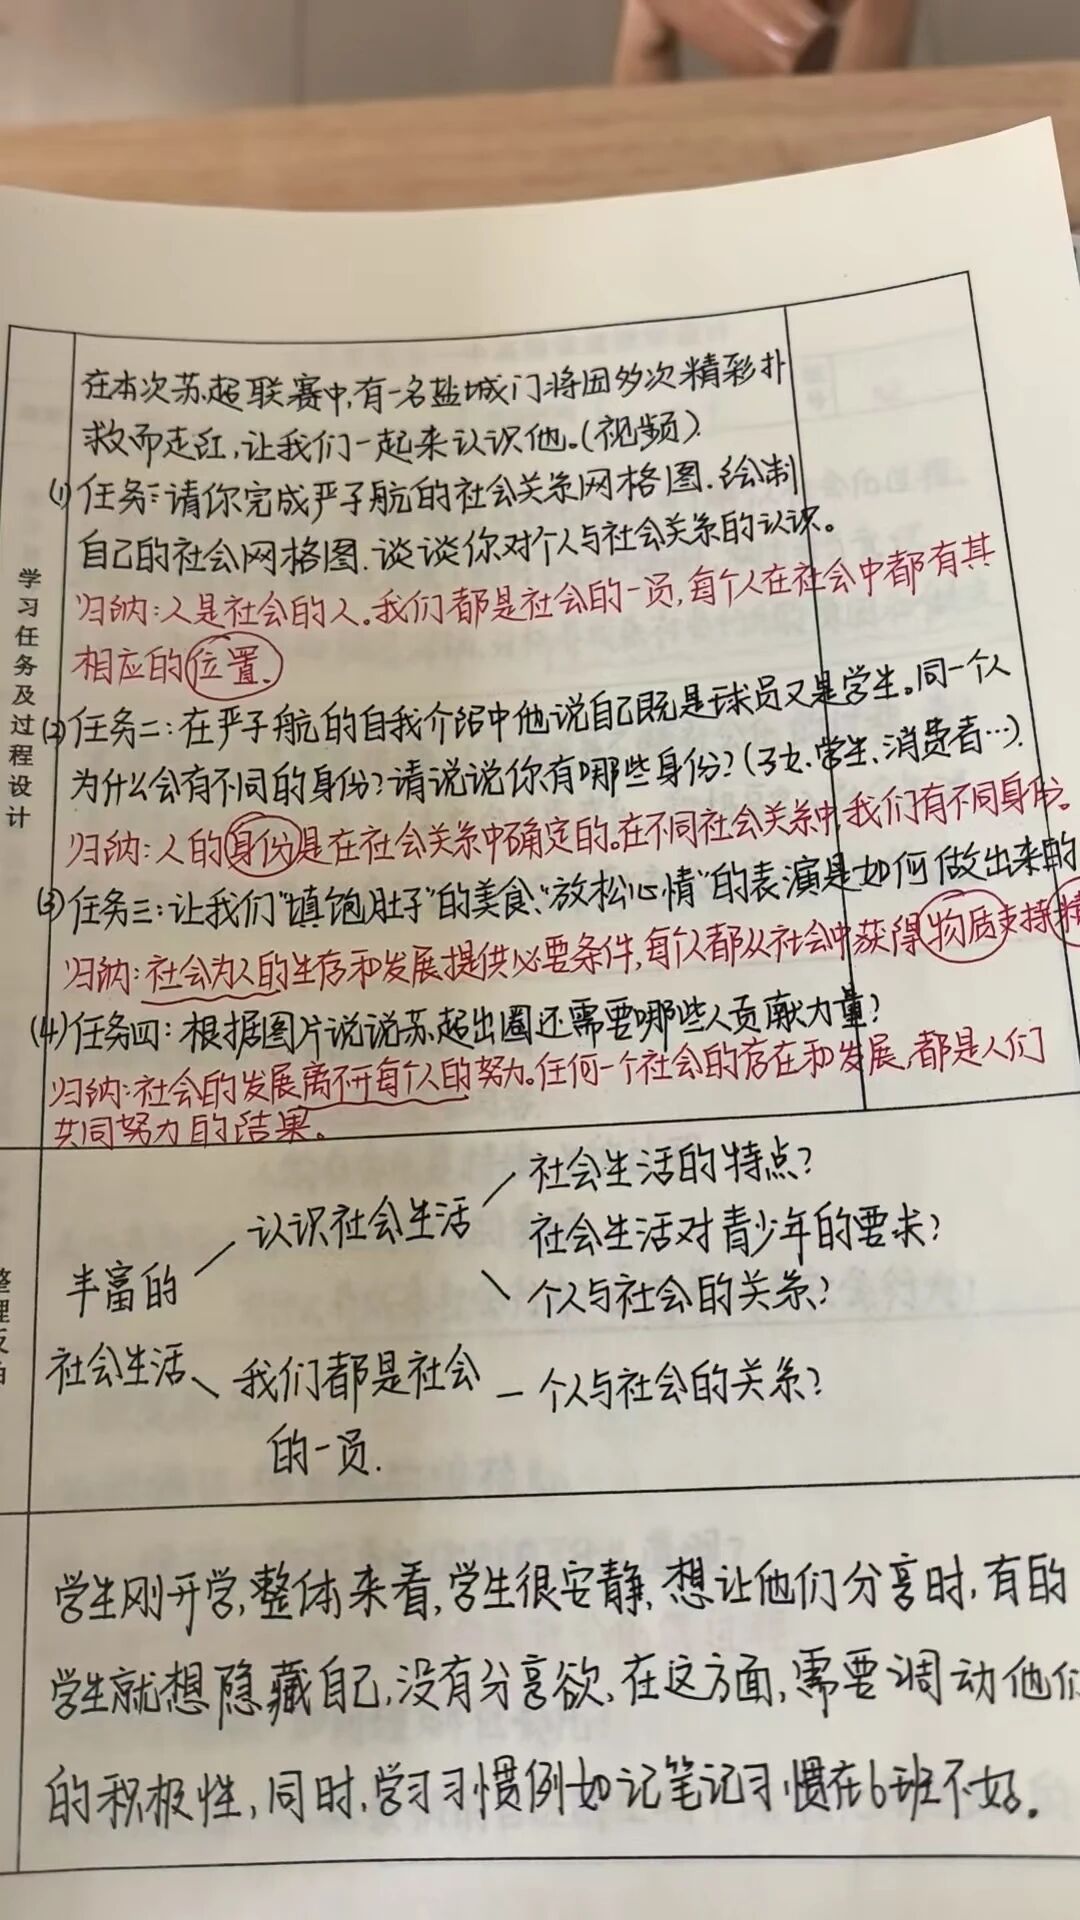 在本次苏超联赛中,有一名盐城门将因多次精彩扑
救而走红,让我们一起来认识他。(视频).
(1)任务一:请你完成严子航的社会关系网格图.绘制
自己的社会网格图.谈谈你对个人与社会关系的认识。
归纳:人是社会的人。我们都是社会的一员,每个人在社会中都有其
相应的位置.
(2)任务二:在严子航的自我介绍中他说自己既是球员又是学生。同一个人
为什么会有不同的身份?请说说你有哪些身份?(子女、学生、消费者…).
归纳:人的身份是在社会关系中确定的。在不同社会关系中,我们有不同身份。
(3)任务三:让我们“填饱肚子”的美食、“放松心情”的表演是如何做出来的
归纳:社会为人的生存和发展提供必要条件,每个人都从社会中获得物质支持精
(4)任务四:根据图片说说苏超出圈还需要哪些人贡献力量?
归纳:社会的发展离不开每个人的努力。任何一个社会的存在和发展,都是人们
共同努力的结果。
学习任务及过程设计
社会生活的特点?
认识社会生活
社会生活对青少年的要求?
丰富的
个人与社会的关系?
社会生活
我们都是社会
个人与社会的关系?
的一员.
整理
学生刚开学,整体来看,学生很安静,想让他们分享时,有的
学生就想隐藏自己,没有分享欲,在这方面,需要调动他们
的积极性,同时,学习习惯例如记笔记习惯在6班不好.